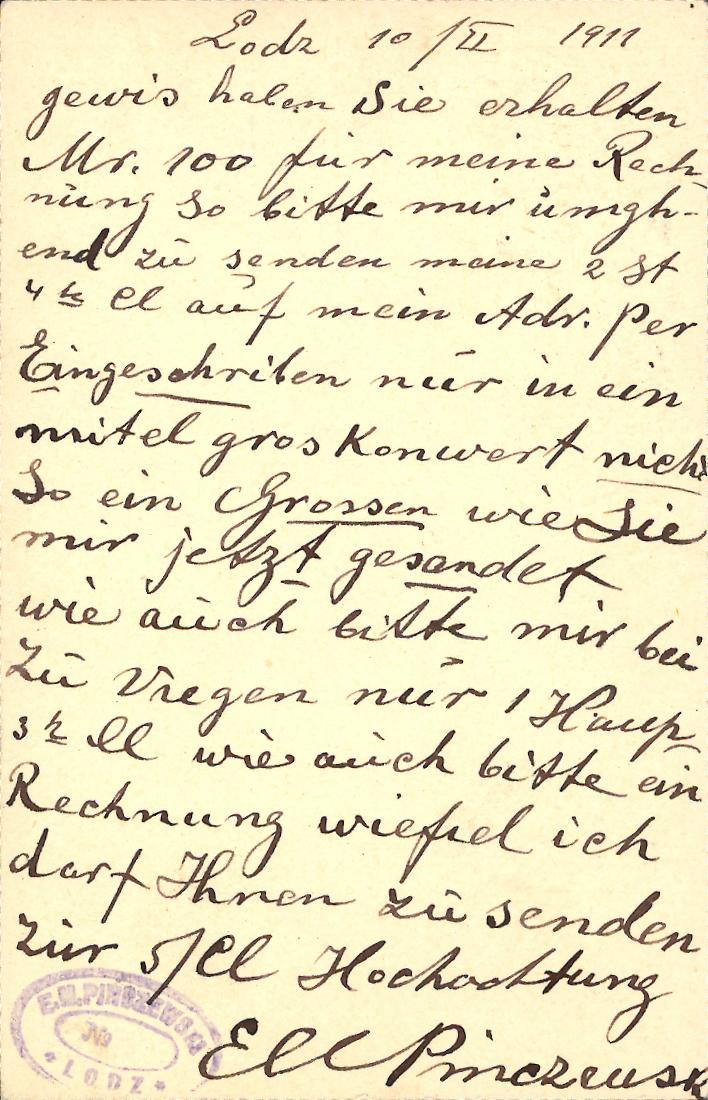 Lodz 10/II 1911
gewis haben Sie erhalten
Mr. 100 für meine Rech-
nung So bitte mir ümgh-
end zü senden meine 2 St
4te Cl aüf mein Adr. per
Eingeschriben nür in ein
mitel gros Konwert nicht
So ein Grossen wie Sie
mir jetzt gesandet
wie aüch bitte mir bei
Zü Viegen nür 1 Haup
3te Cl wie aüch bitte ein
Rechnung wiefiel ich
darf Ihnen zü senden
Zür 5/Cl Hochachtung
E M Pinczewsk
E.M. PINCZEWSKI
No
* LODZ *